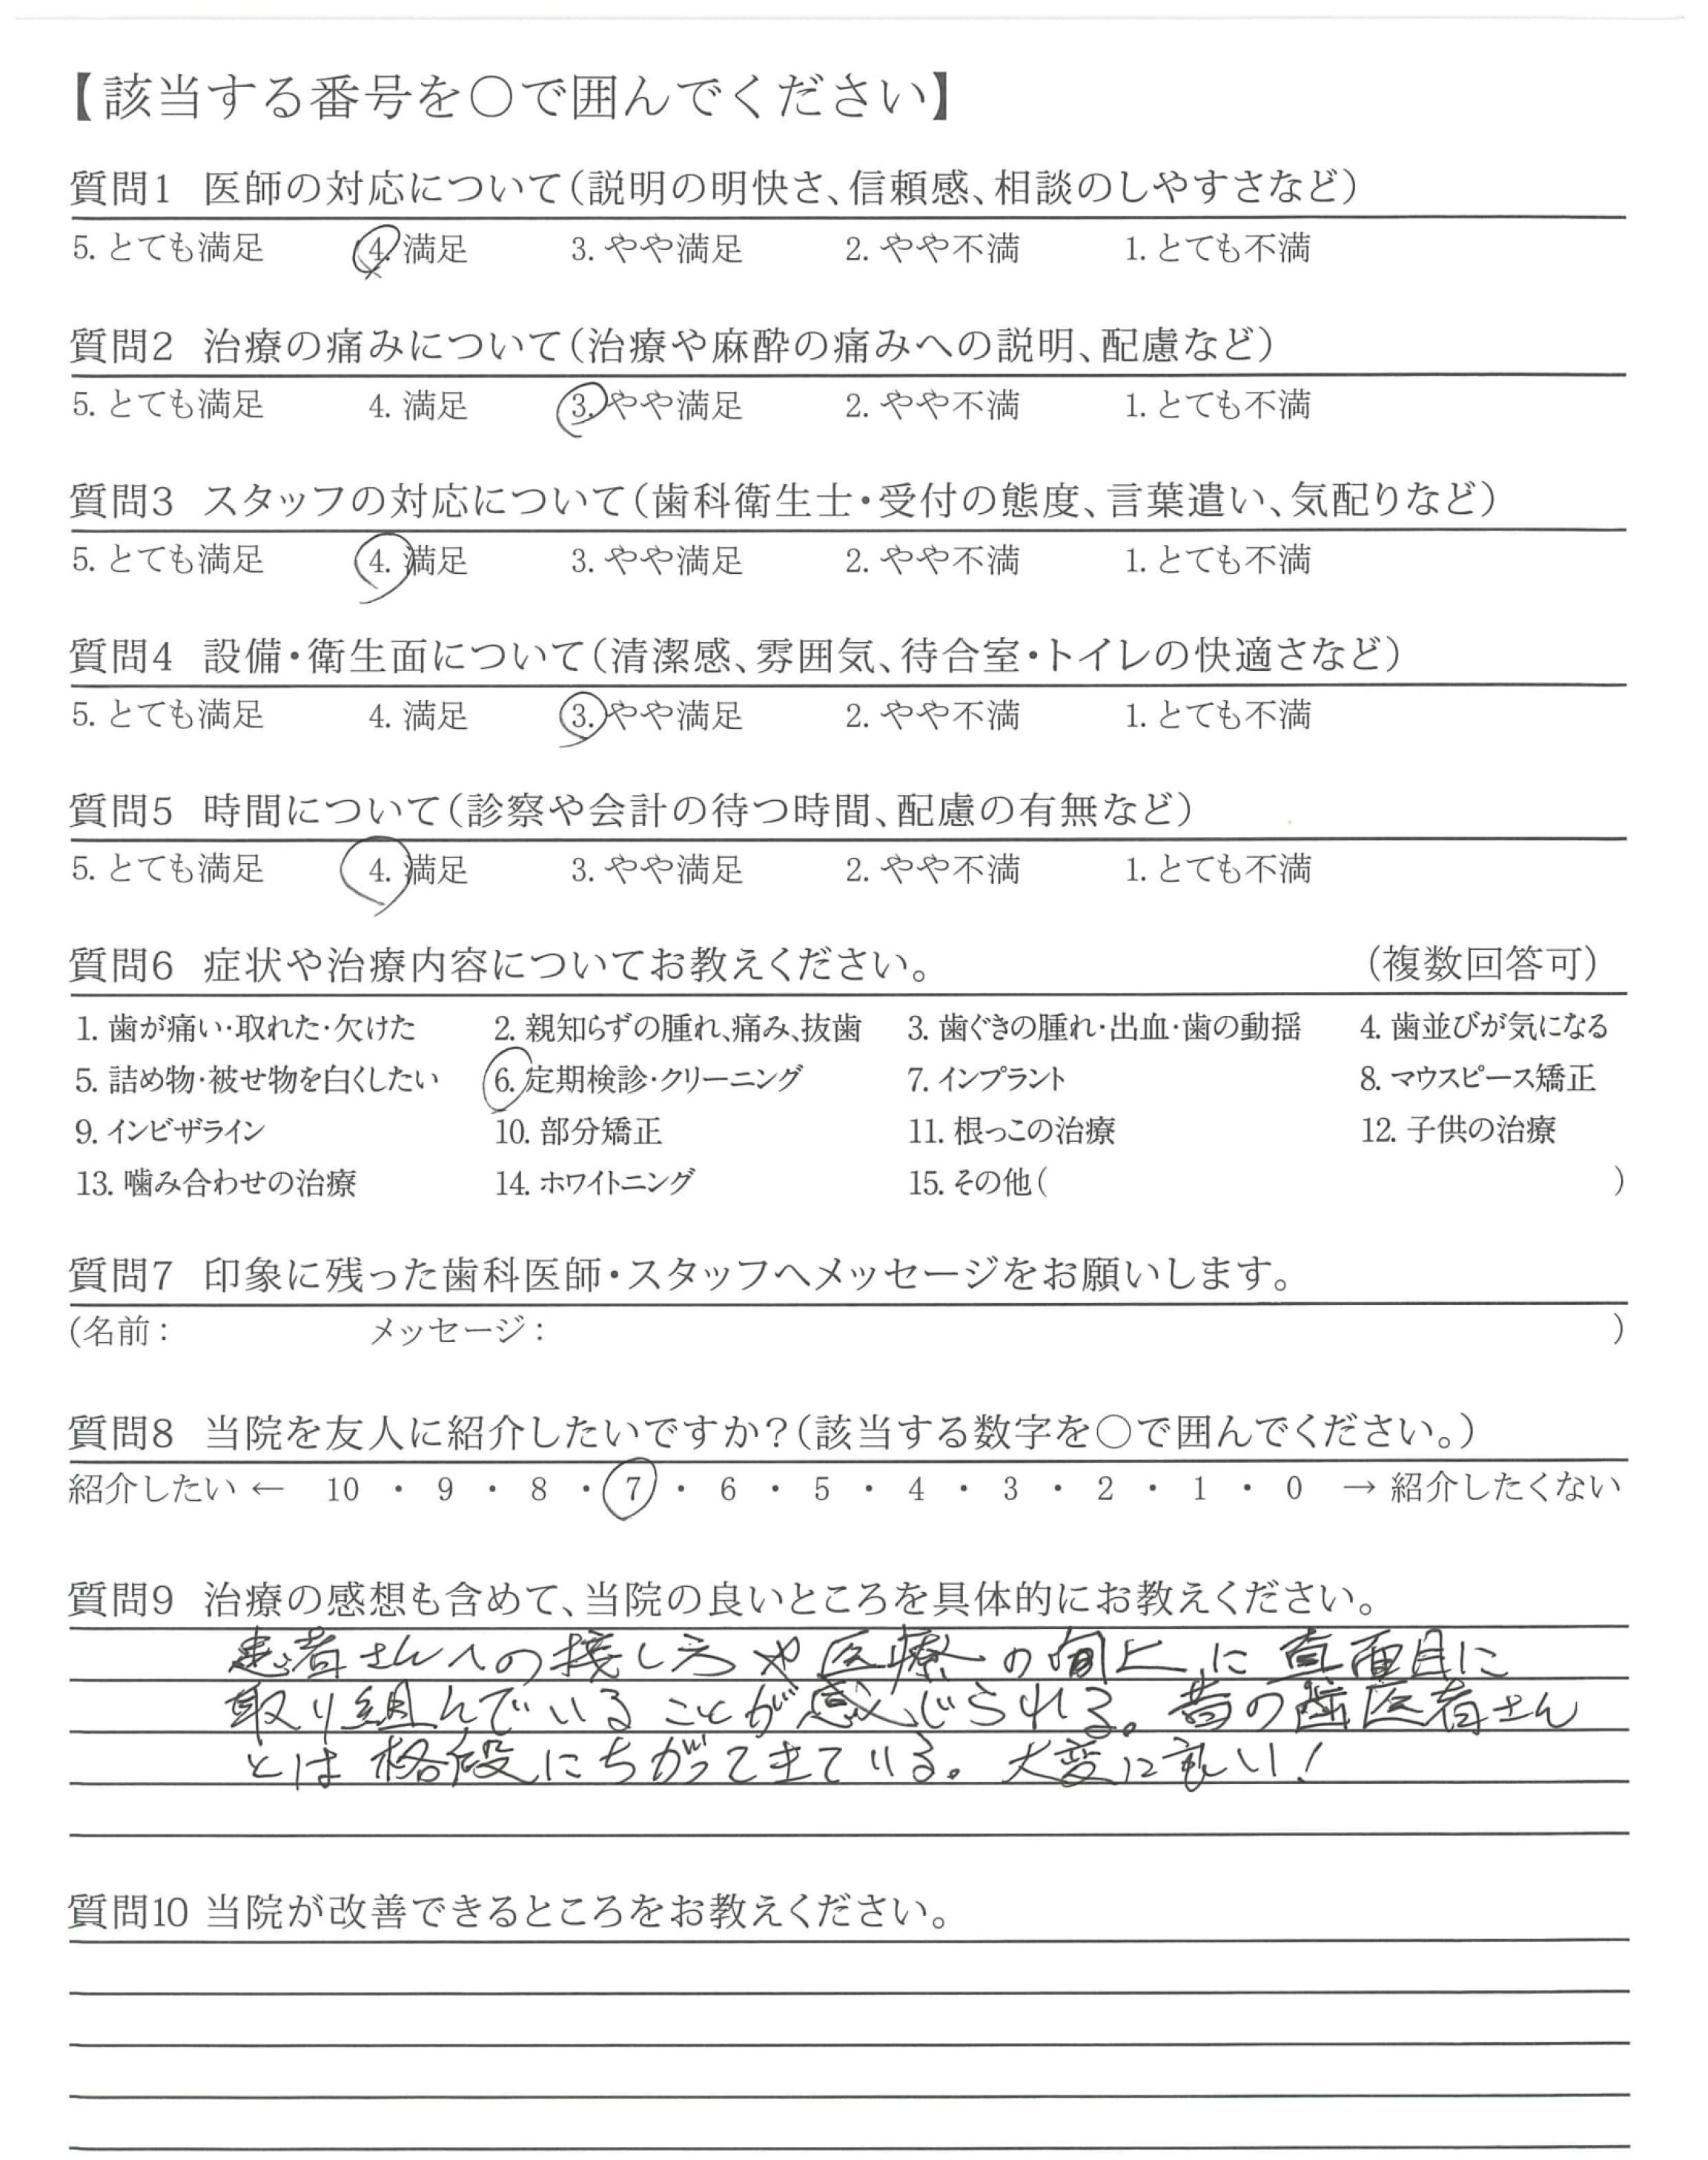 【該当する番号を〇で囲んでください】
質問1 医師の対応について（説明の明快さ、信頼感、相談のしやすさなど）
5. とても満足 4. 満足 3. やや満足 2. やや不満 1. とても不満
質問2 治療の痛みについて（治療や麻酔の痛みへの説明、配慮など）
5. とても満足 4. 満足 3. やや満足 2. やや不満 1. とても不満
質問3 スタッフの対応について（歯科衛生士・受付の態度、言葉遣い、気配りなど）
5. とても満足 4. 満足 3. やや満足 2. やや不満 1. とても不満
質問4 設備・衛生面について（清潔感、雰囲気、待合室・トイレの快適さなど）
5. とても満足 4. 満足 3. やや満足 2. やや不満 1. とても不満
質問5 時間について（診察や会計の待つ時間、配慮の有無など）
5. とても満足 4. 満足 3. やや満足 2. やや不満 1. とても不満
質問6 症状や治療内容についてお教えください。 （複数回答可）
1. 歯が痛い・取れた・欠けた 2. 親知らずの腫れ、痛み、抜歯 3. 歯ぐきの腫れ・出血・歯の動揺 4. 歯並びが気になる
5. 詰め物・被せ物を白くしたい 6. 定期検診・クリーニング 7. インプラント 8. マウスピース矯正
9. インビザライン 10. 部分矯正 11. 根っこの治療 12. 子供の治療
13. 噛み合わせの治療 14. ホワイトニング 15. その他（ ）
質問7 印象に残った歯科医師・スタッフへメッセージをお願いします。
（名前： メッセージ： ）
質問8 当院を友人に紹介したいですか？（該当する数字を〇で囲んでください。）
紹介したい ← 10 ・ 9 ・ 8 ・ 7 ・ 6 ・ 5 ・ 4 ・ 3 ・ 2 ・ 1 ・ 0 → 紹介したくない
質問9 治療の感想も含めて、当院の良いところを具体的にお教えください。
患者さんへの接し方や医療の向上に真面目に
取り組んでいることが感じられる。昔の歯医者さん
とは格段にちがってきている。大変に良い！
質問10 当院が改善できるところをお教えください。